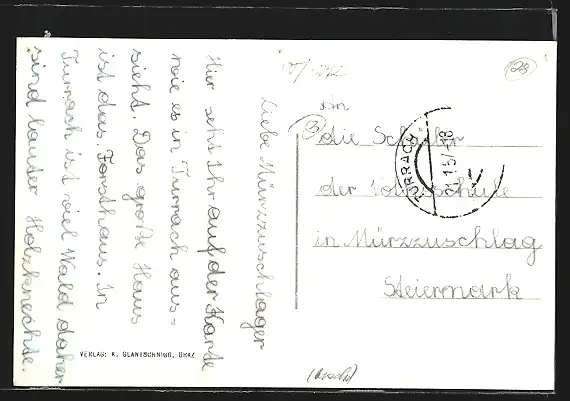 Liebe Mürzzuschlager
Hier seht Ihr auf der Karte
wie es in Turrach aus=
sieht. Das große Haus
ist das Forsthaus. In
Turrach ist viel Wald daher
sind lauter Holzknechte.
VERLAG: K. GLANTSCHNIGG, GRAZ
28
An
die Schüler
der Volksschule
in Mürzzuschlag
Steiermark
TURRACH